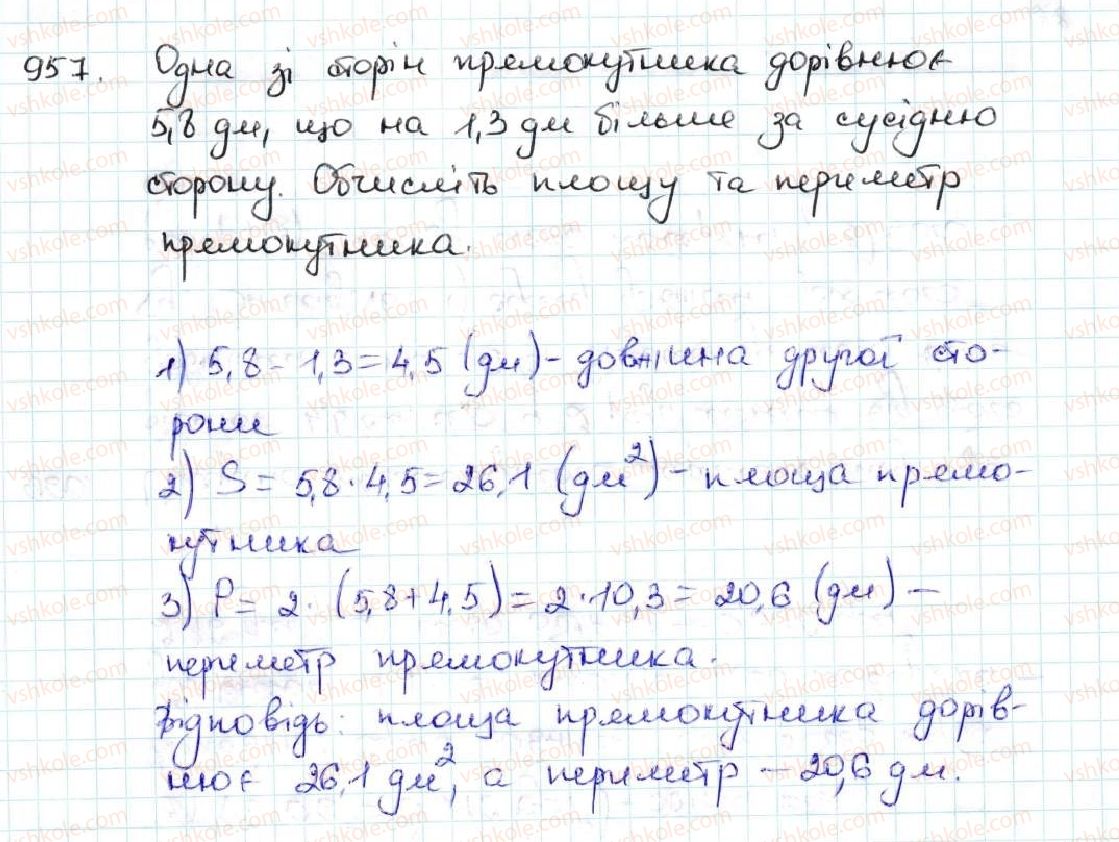 957. Одна зі сторін прямокутника дорівнює
5,8 дм, що на 1,3 дм більше за сусідню
сторону. Обчисліть площу та периметр
прямокутника.
1) 5,8 - 1,3 = 4,5 (дм) - довжина другої сто-
рони
2) S = 5,8 · 4,5 = 26,1 (дм²) - площа прямо-
кутника
3) P = 2 · (5,8 + 4,5) = 2 · 10,3 = 20,6 (дм) -
периметр прямокутника.
Відповідь: площа прямокутника дорів-
нює 26,1 дм², а периметр - 20,6 дм.